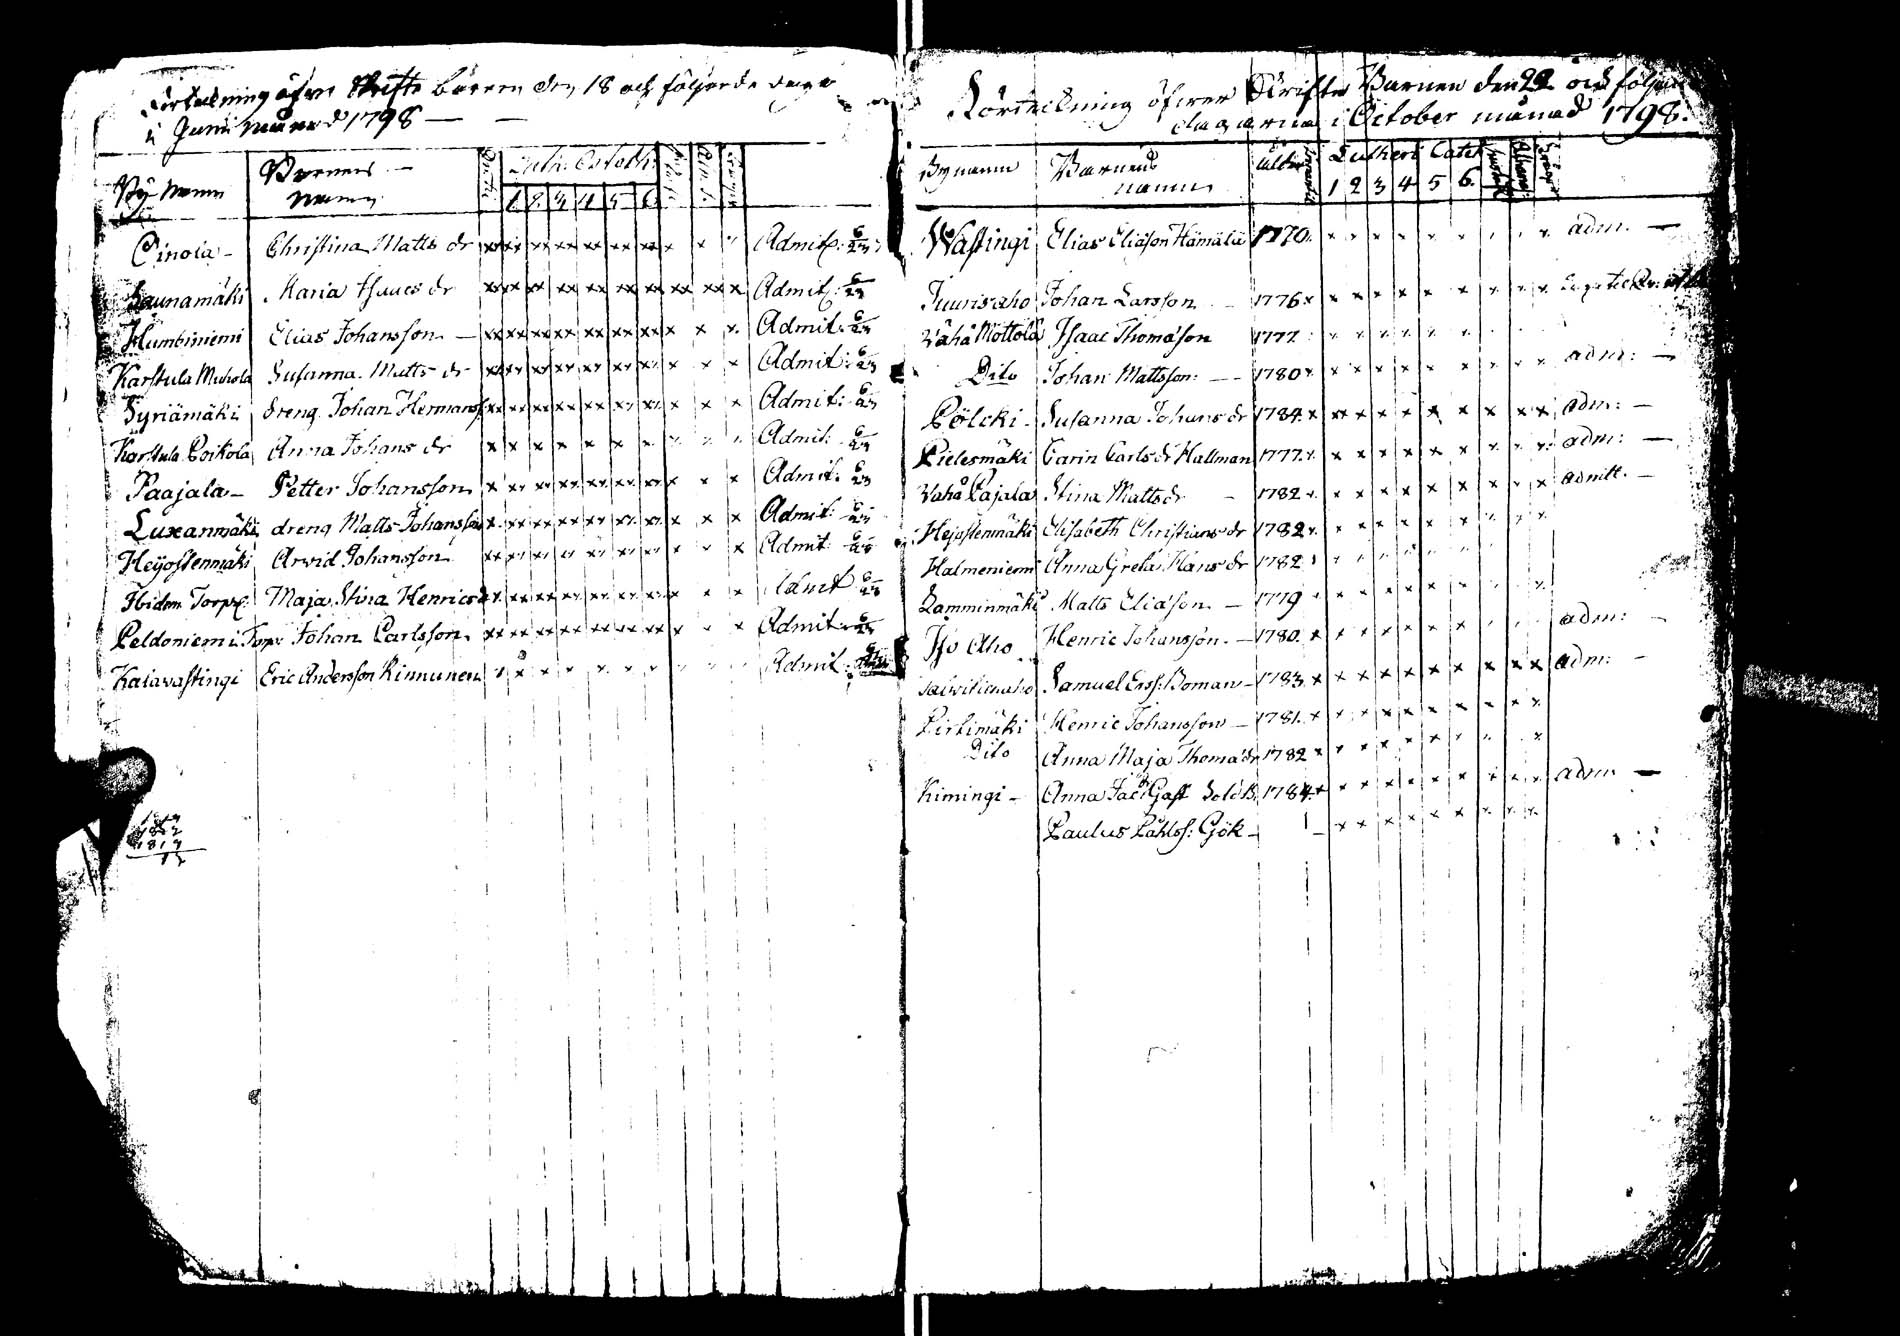 Förteckning öfver Skrifte barnen den 18 och följande dagar
i Junii månad 1798 —
By Namn Barnens namn Luth: Catech:
1. 2. 3. 4. 5. 6.
Cinola - Christina Matts dr Admit:
Saunamäki Maria Isaacs dr Admit:
Humbiniemi Elias Johansson Admit:
Karstula Michola Susanna Matts dr Admit:
Syriämäki Dreng Johan Hermanss: Admit:
Karstula Poikola Anna Johans dr Admit:
Paajala - Petter Johansson Admit:
Luxanmäki dreng Matts Johansson Admit:
Heijostenmäki Arvid Johansson Admit:
Ibidem Torp: Maja Stina Henricsd Admit
Peldoniemi Torp: Johan Carlsson Admit
Kaiavastingi Eric Andersson Kinnunen Admit:
1817
Förteckning öfwer Skrifte Barnen den 22 och följan
dagarna i October månad 1798.
Bynamn Barnens namn Ålder Lutheri Catech
1 2 3 4 5 6
Wastingi Elias Eliasson Hämäläi 1770. adm. —
Juurisaho Johan Larsson 1776
Vähä Mottola Isaac Thomasson 1777
Dito Johan Mattsson: 1780 adm: —
Pölcki - Susanna Johans dr 1784 adm: —
Pielesmäki Carin Carls dr Hallman 1777 adm: —
Vähä Pajala Stina Matts dr 1782 admitt. —
Hejostenmäki Elisabeth Christians dr 1782
Halmeniemi Anna Greta Hans dr 1782
Lamminmäki Matts Eliasson 1779
Iso Aho Henric Johansson 1780. adm: —
Samuel Erss: Boman 1783 adm: —
Pirtimäki Henric Johansson 1781.
Dito Anna Maja Thoma dr 1782
Kimingi - Anna Jac: Gast Sold: 1784 adm —
Paulus Påhlss: Gök -